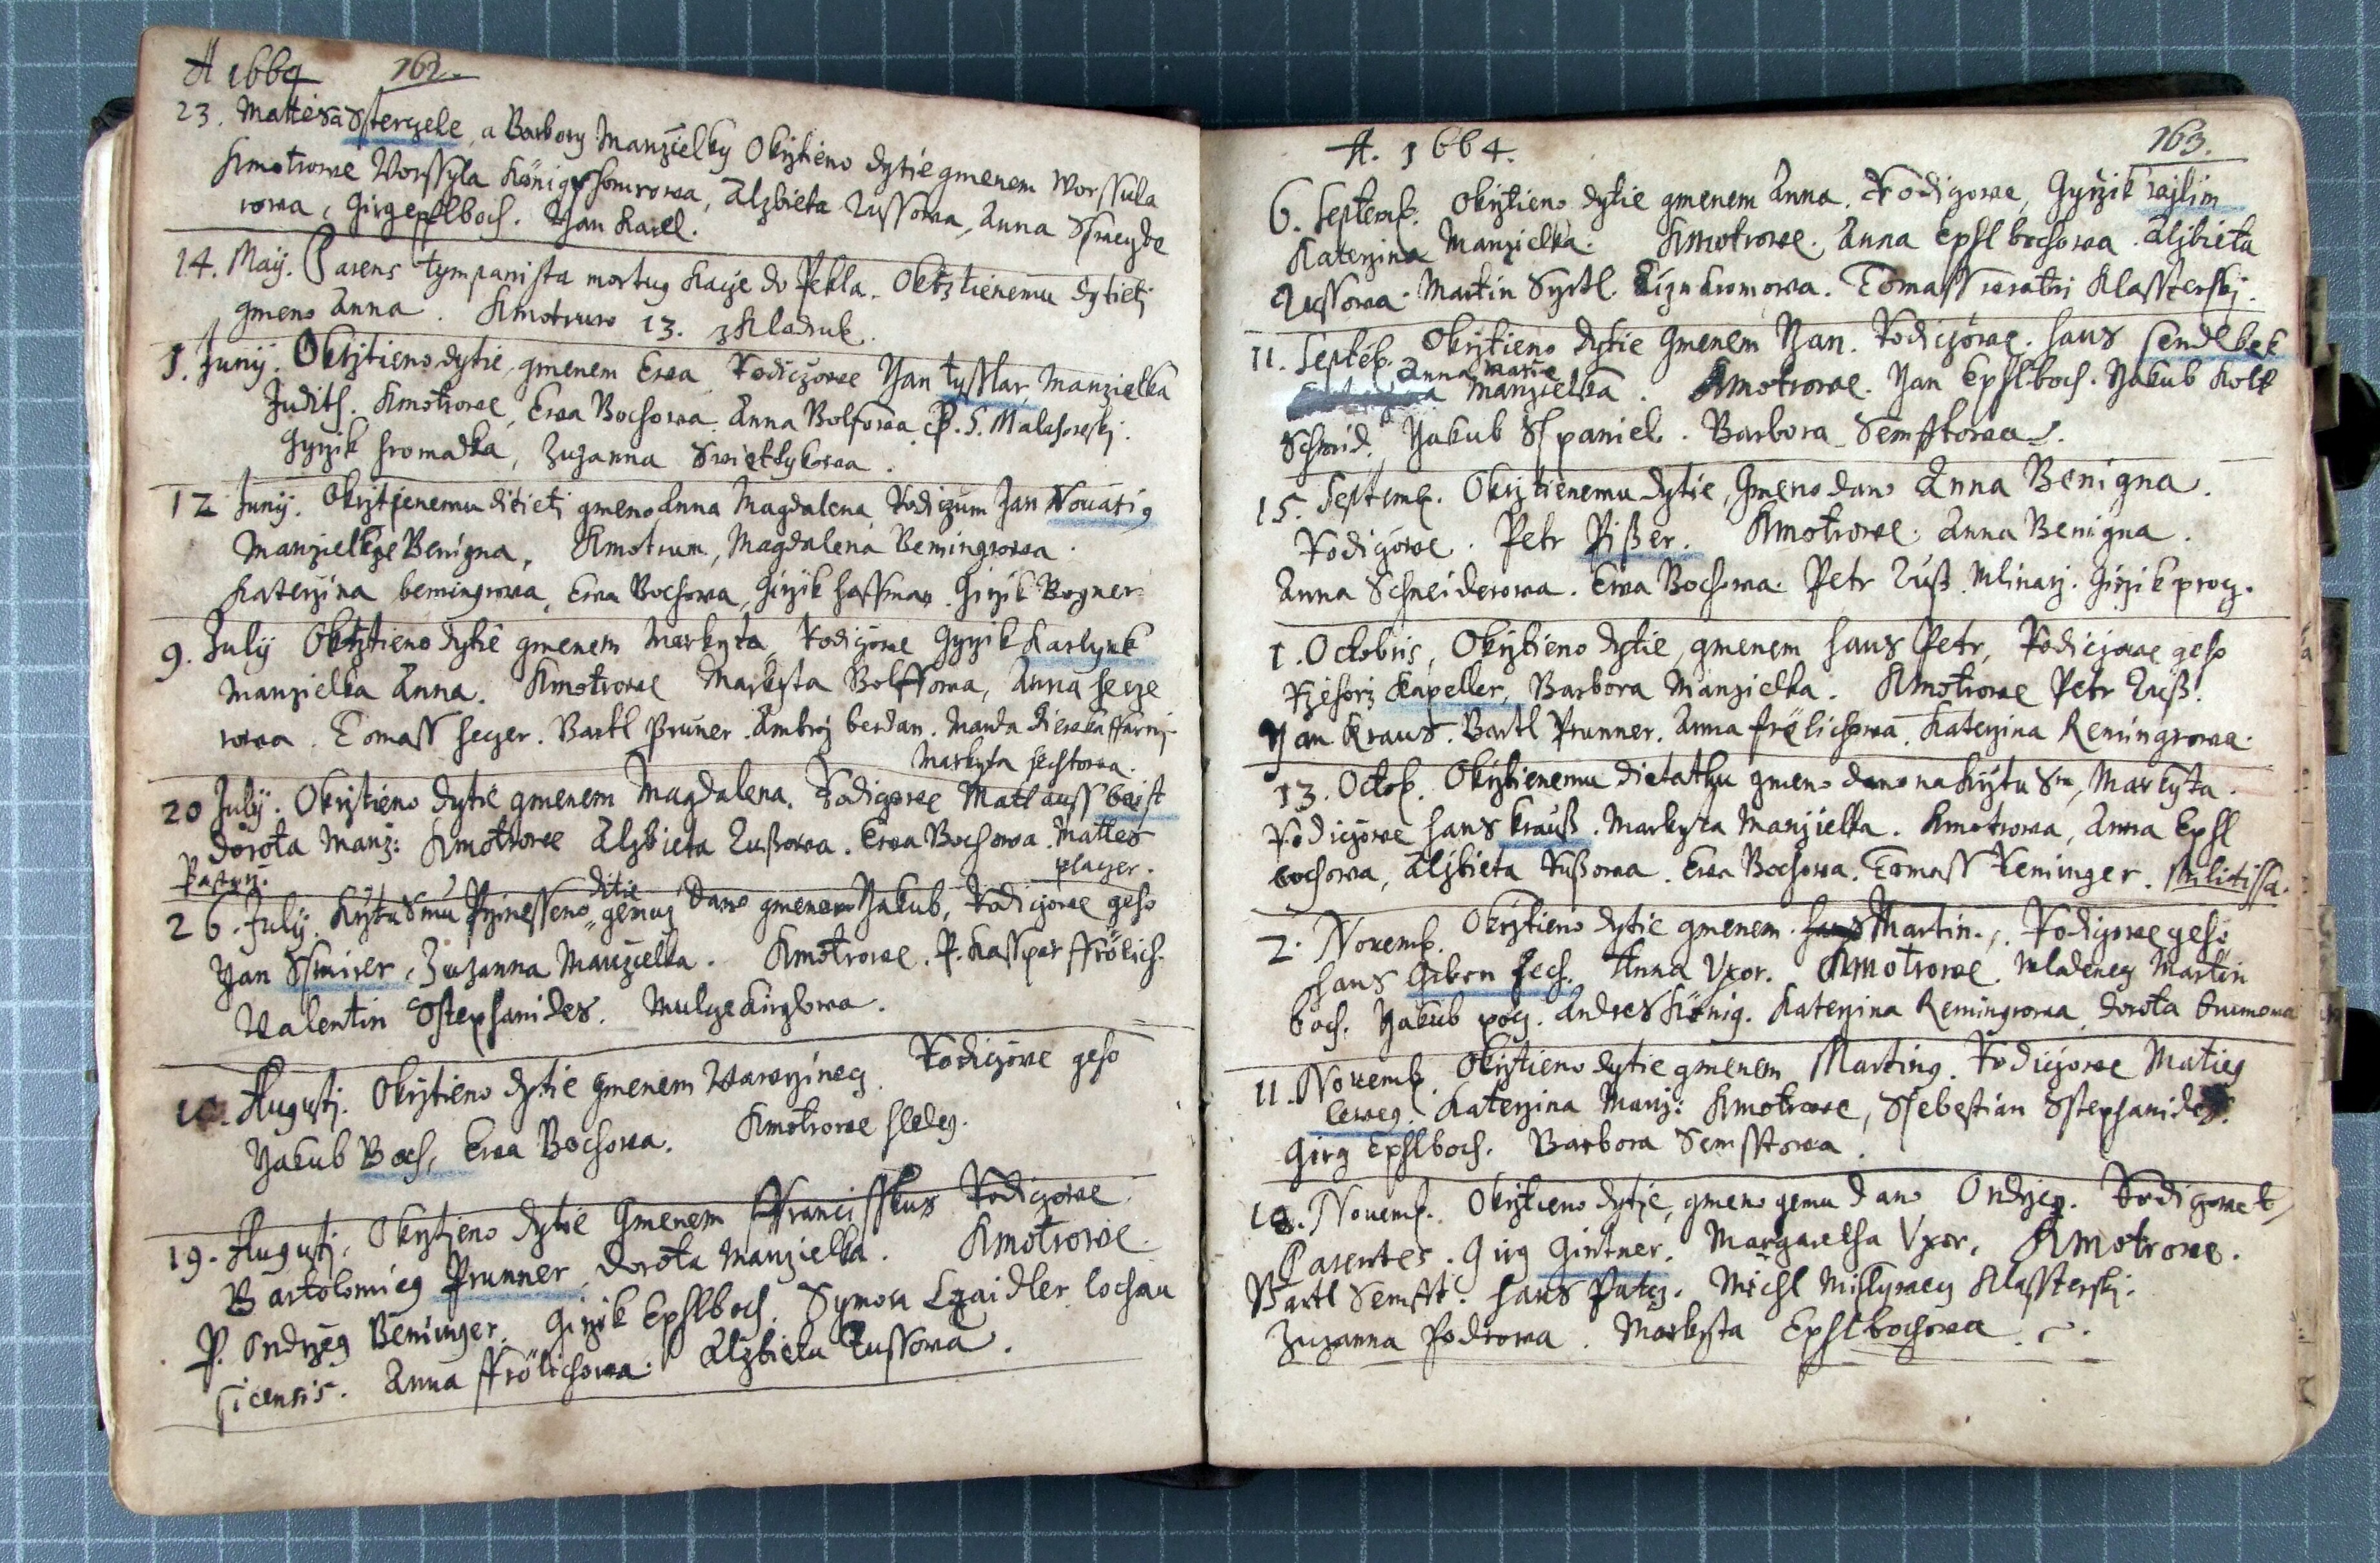 A 1664 162.
23. Mattesa Sstergele, a Barbory Manzielky Okrztieno dytie gmenem Worssula
Kmotrowe Worssyla Königshomrowa, Alzbieta Russowa, Anna
rowa, Girg Epslboch. Yan Karel.
14. Maij. Parens tympanista mortuus kaije do Pekla. Okrztienemu dytieti
gmeno Anna. Kmotruw 13. z Kladrub.
1. Junij. Okrztieno dytie gmenem Ewa Rodiczowe Yan tysslar, Manzielka
Judith. Kmotrowe, Ewa Bochowa. Anna Bolfowa. P. S. Malahowskj.
Gyrzik hromadka, Zuzanna Swietlykowa.
12 Junij. Okrztienemu ditieti gmeno Anna Magdalena Rodiczum Jan Nouatig
Manzielkze Benigna, Kmotrum, Magdalena Remingrowa.
Katerzina Remingrowa, Ewa Bochowa, Girzik hassman. Girzik Bogner.
9. Julij Okrztieno dytie gmenem Markyta Rodiczowe Gyrzik Karlynk
Manzielka Anna. Kmotrowe Markyta Bolffowa, Anna hege
rowa. Tomass heger. Bartl Pruner. Ambroz berdan. Manda diewka ffarnj.
Markyta hechtowa.
20 Julij. Okrztieno dytie gmenem Magdalena. Rodiczowe Matl auss beist
Dorota Manz: Kmotrowe Alzbieta Russowa. Ewa Bochowa. Mattes
player.
26. Julij. Krztu Smu Przinesseno ditie gemuz Dano gmeno Yakub, Rodiczowe geho
Yan Ssmirer, Zuzanna Manzielka. Kmotrowe. P. Kasspar ffrölich.
Valentin Sstephanides. Mulze
10. Augustj. Okrztieno dytie gmenem Wawrzinecz. Rodiczowe geho
Yakub Boch, Ewa Bochowa. Kmotrowe hledeg.
19. Augustj. Okrztieno dytie Gmenem ffrancisskus Rodiczowe
Bartolomieg Prunner, Dorota Manzielka. Kmotrowe
P. Ondrzeg Reminger. Girzik Epslboch. Symon Czaidler lochau
sicensis. Anna ffrölichowa. Alzbieta Russowa.
A. 1664. 163.
6. Septemb. Okrztieno dytie gmenem Anna. Rodiczowe, Gyrzik rajlim
Katerzina Manzielka. Kmotrowe. Anna Epslbochowa. Alzbieta
Russowa. Martin Syrtl. Tomass Klassterskj.
11. Septeb. Okrztieno dytie Gmenem Yan. Rodiczowe. hans sendlbek
Anna Marie Manzielka. Kmotrowe. Yan Epslboch. Yakub Kolb
Schmid. Yakub Sspaniel. Barbora Semfftowa.
15. Septemb. Okrztienemu dytie, Gmeno dano Anna Benigna.
Rodiczowe. Petr Pißer. Kmotrowe: Anna Benigna.
Anna Schneiderowa. Ewa Bochowa. Petr Ruß. Mlinarz. Girzik procz.
1. Octobris, Okrztieno dytie, gmenem hans Petr, Rodiczowe geho
Rzehorz Kapeller, Barbora Manzielka. Kmotrowe Petr Ruß.
Yan Kraus. Bartl Prunner. Anna frölichowa. Katerzina Remingrowa.
13. Octob. Okrztienemu dietatku gmeno dano na krztu Sm, Markyta.
Rodiczowe hans Krauß. Markyta Manzielka. Kmotrowa, Anna Epsl
bochowa, Alzbieta Rußowa. Ewa Bochowa. Tomass Reminger. Militissa.
2. Nouemb. Okrztieno dytie gmenem hans Martin. Rodiczowe geho
hans Gibenhech. Anna Vxor. Kmotrowe. Mladenecz Martin
boch. Yakub pocz. Andres König. Katerzina Remingrowa Dorota
11. Nouemb. Okrztieno dytie gmenem Marting. Rodiczowe Matieg
Katerzina Manz: Kmotrowe, Ssebestian Sstephanides.
Girg Epslboch. Barbora Semfftowa.
18. Nouemb. Okrztieno dytie, gmeno gemu dano Ondrzeg. Rodiczowe t/
Parentes. Girg Gintner. Margaretha Vxor. Kmotrowe.
Bartl Semfft. hans Patcz. Michl Klassterskj.
Zuzanna Podrowa. Markyta Epslbochowa.